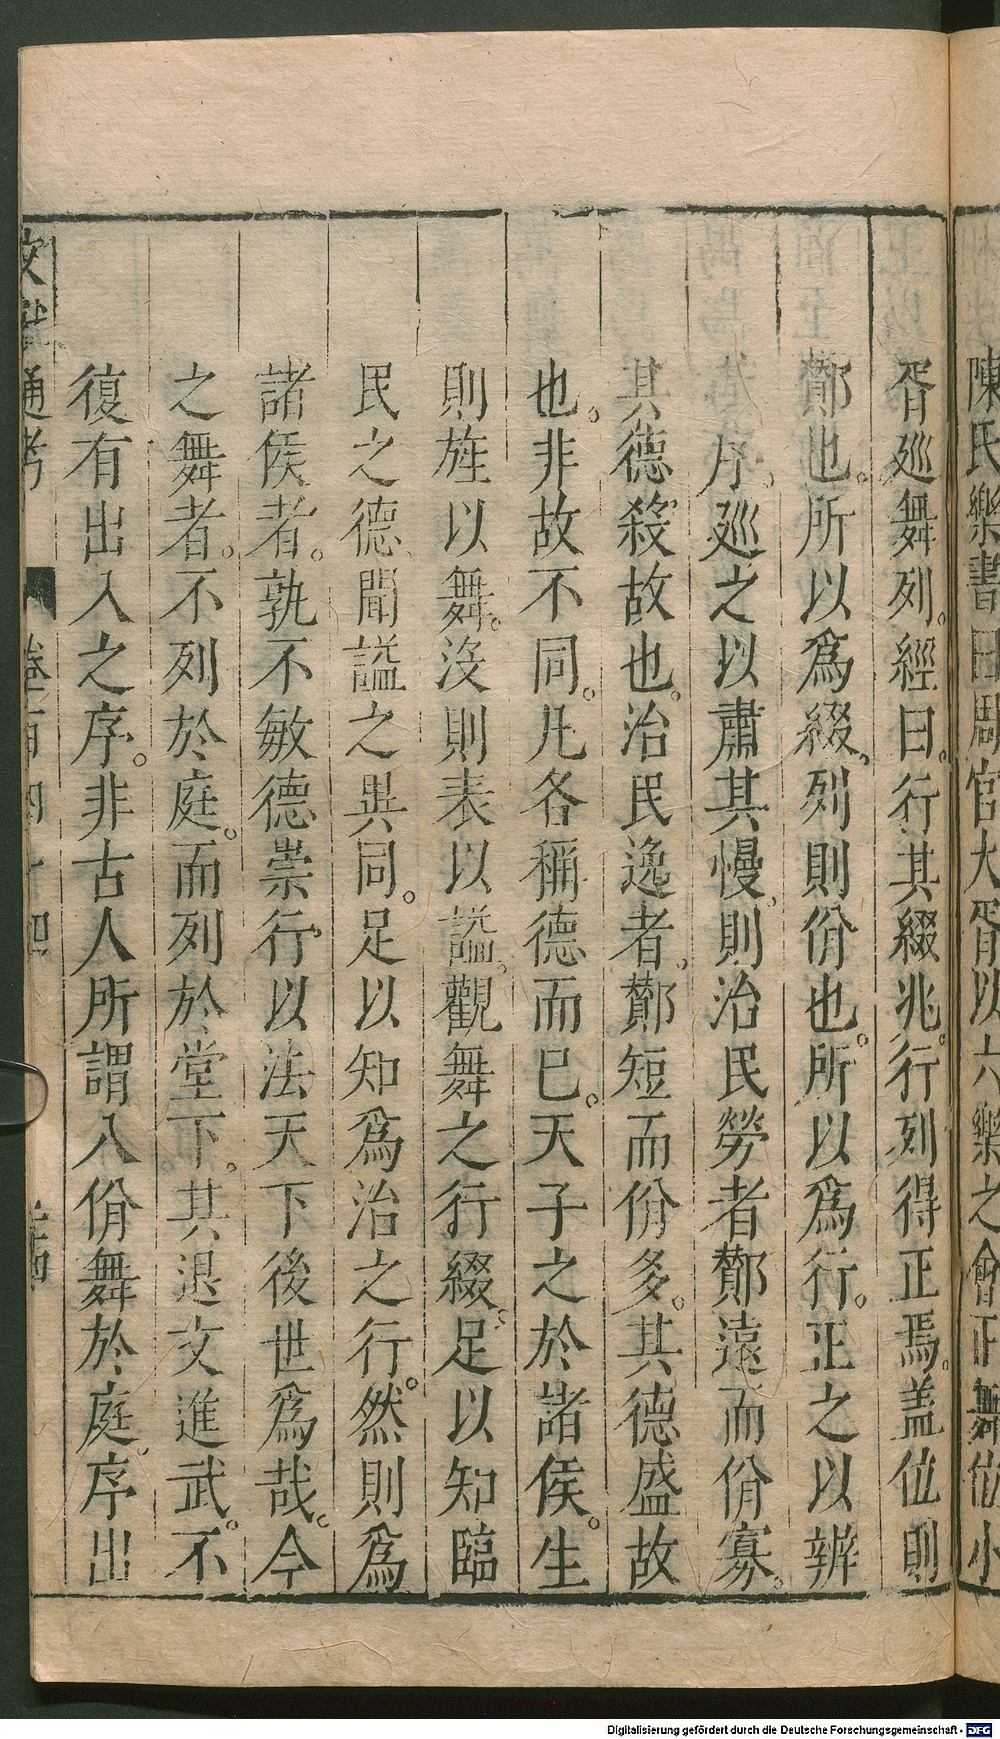 陳氏樂書曰周官大胥以六樂之會正舞位小
胥廵舞列。經曰。行其綴兆。行列得正焉。盖位則
酇也。所以爲綴。列則佾也。所以爲行。正之以辨
序。廵之以肅其慢。則治民勞者酇遠而佾寡。
其德殺故也。治民逸者。酇短而佾多。其德盛故
也。非故不同。凡各稱德而巳。天子之於諸侯。生
則旌以舞。沒則表以謚。觀舞之行綴。足以知臨
民之德聞謚之異同。足以知爲治之行。然則爲
諸侯者。孰不敏德崇行。以法天下後世爲哉。今
之舞者。不列於庭。而列於堂下。其退文進武。不
復有出入之序。非古人所謂八佾舞於庭。序出
文獻通考 卷一百四十四
Digitalisierung gefördert durch die Deutsche Forschungsgemeinschaft - DFG